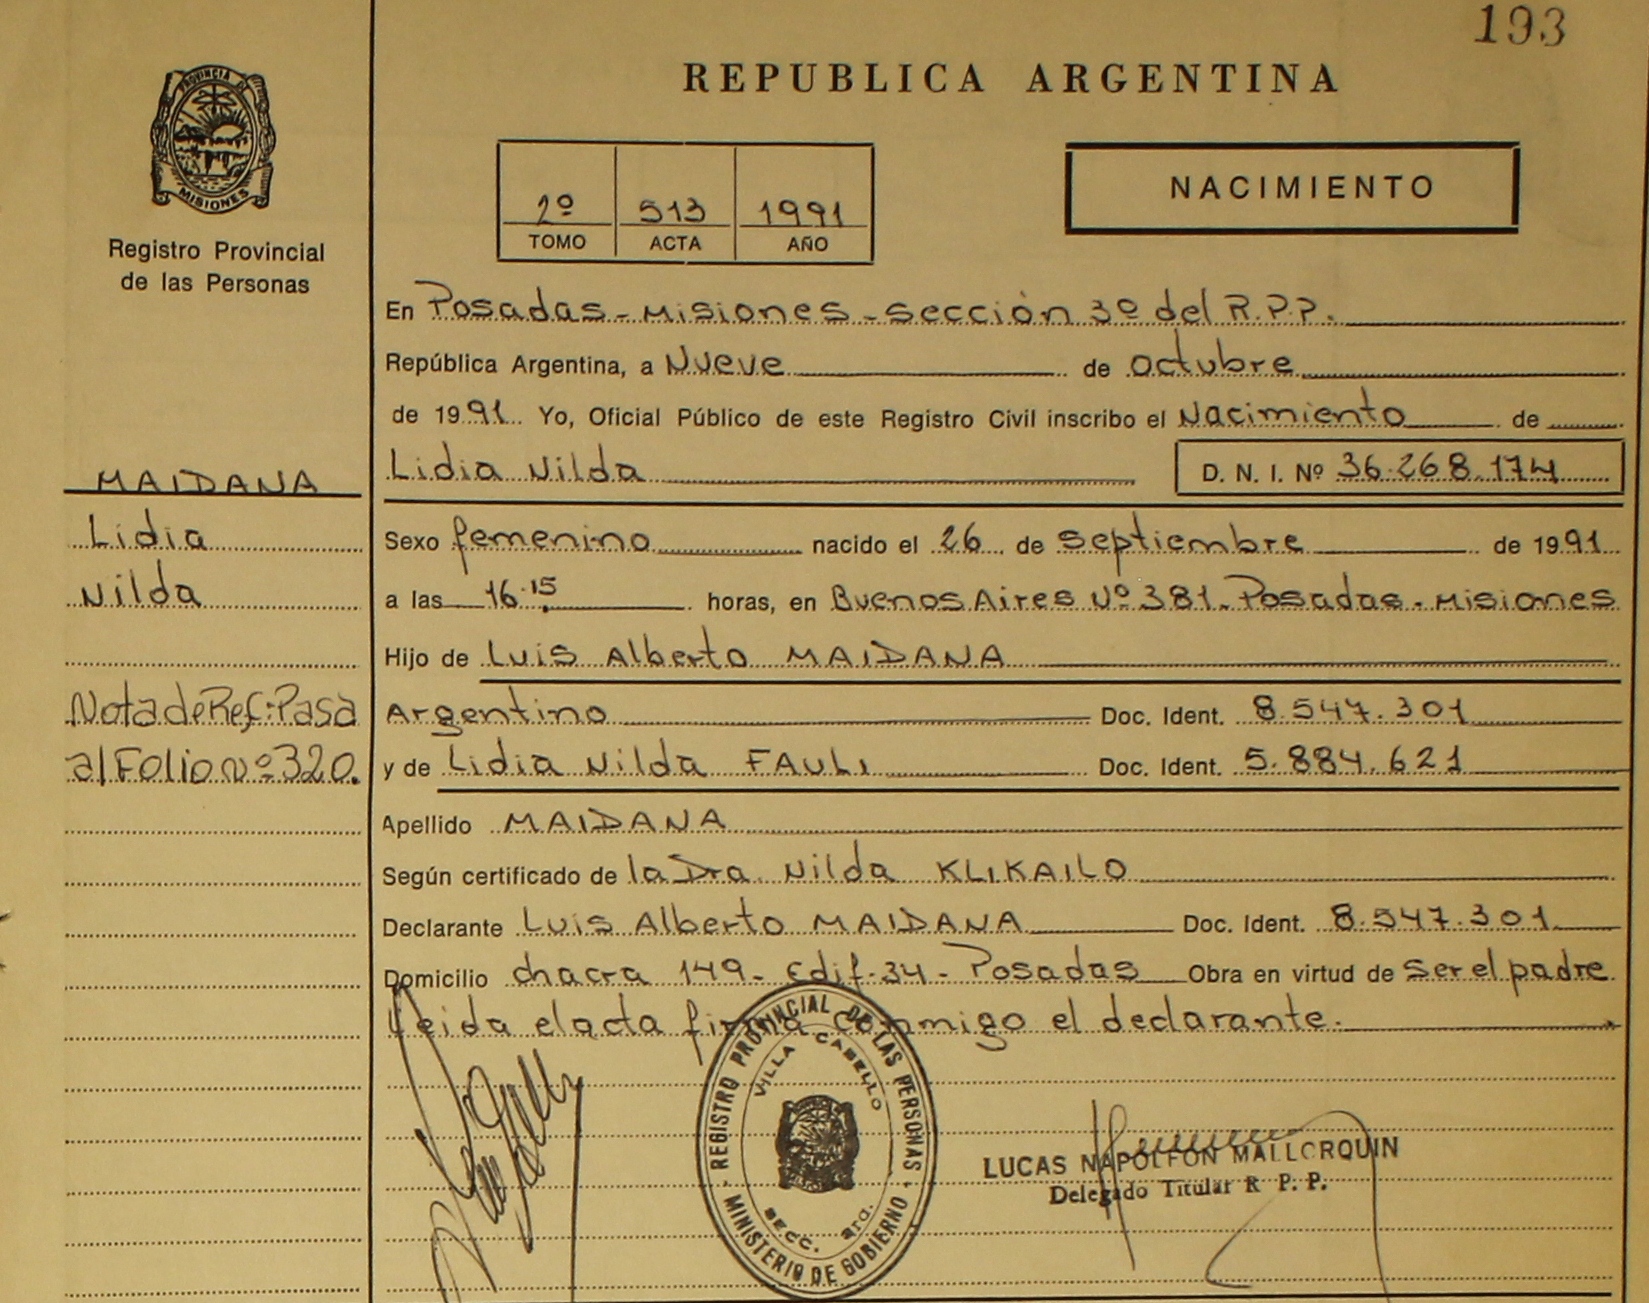 193
REPUBLICA ARGENTINA
PROVINCIA DE
MISIONES
Registro Provincial
de las Personas
2º 513 1991
TOMO ACTA AÑO
NACIMIENTO
En Posadas - Misiones - Sección 3º del R.P.P.
República Argentina, a Nueve de octubre
de 1991 Yo, Oficial Público de este Registro Civil inscribo el Nacimiento de
Lidia Nilda D. N. I. Nº 36.268.174
MAIDANA
Lidia
Nilda
Nota de Ref: Pasa
al Folio nº 320.
Sexo femenino nacido el 26 de septiembre de 1991
a las 16.15 horas, en Buenos Aires Nº 381. Posadas - Misiones
Hijo de Luis Alberto MAIDANA
Argentino Doc. Ident. 8.547.301
y de Lidia Nilda FAULI Doc. Ident. 5.884.621
Apellido MAIDANA
Según certificado de la Dra. Nilda KLIKAILO
Declarante Luis Alberto MAIDANA Doc. Ident. 8.547.301
Domicilio chacra 149 - Edif. 34 - Posadas Obra en virtud de Ser el padre
Leida el acta firma conmigo el declarante.
REGISTRO PROVINCIAL DE LAS PERSONAS
VILLA CABELLO
SECC.
MINISTERIO DE GOBIERNO
LUCAS NAPOLEON MALLORQUIN
Delegado Titular R P. P.